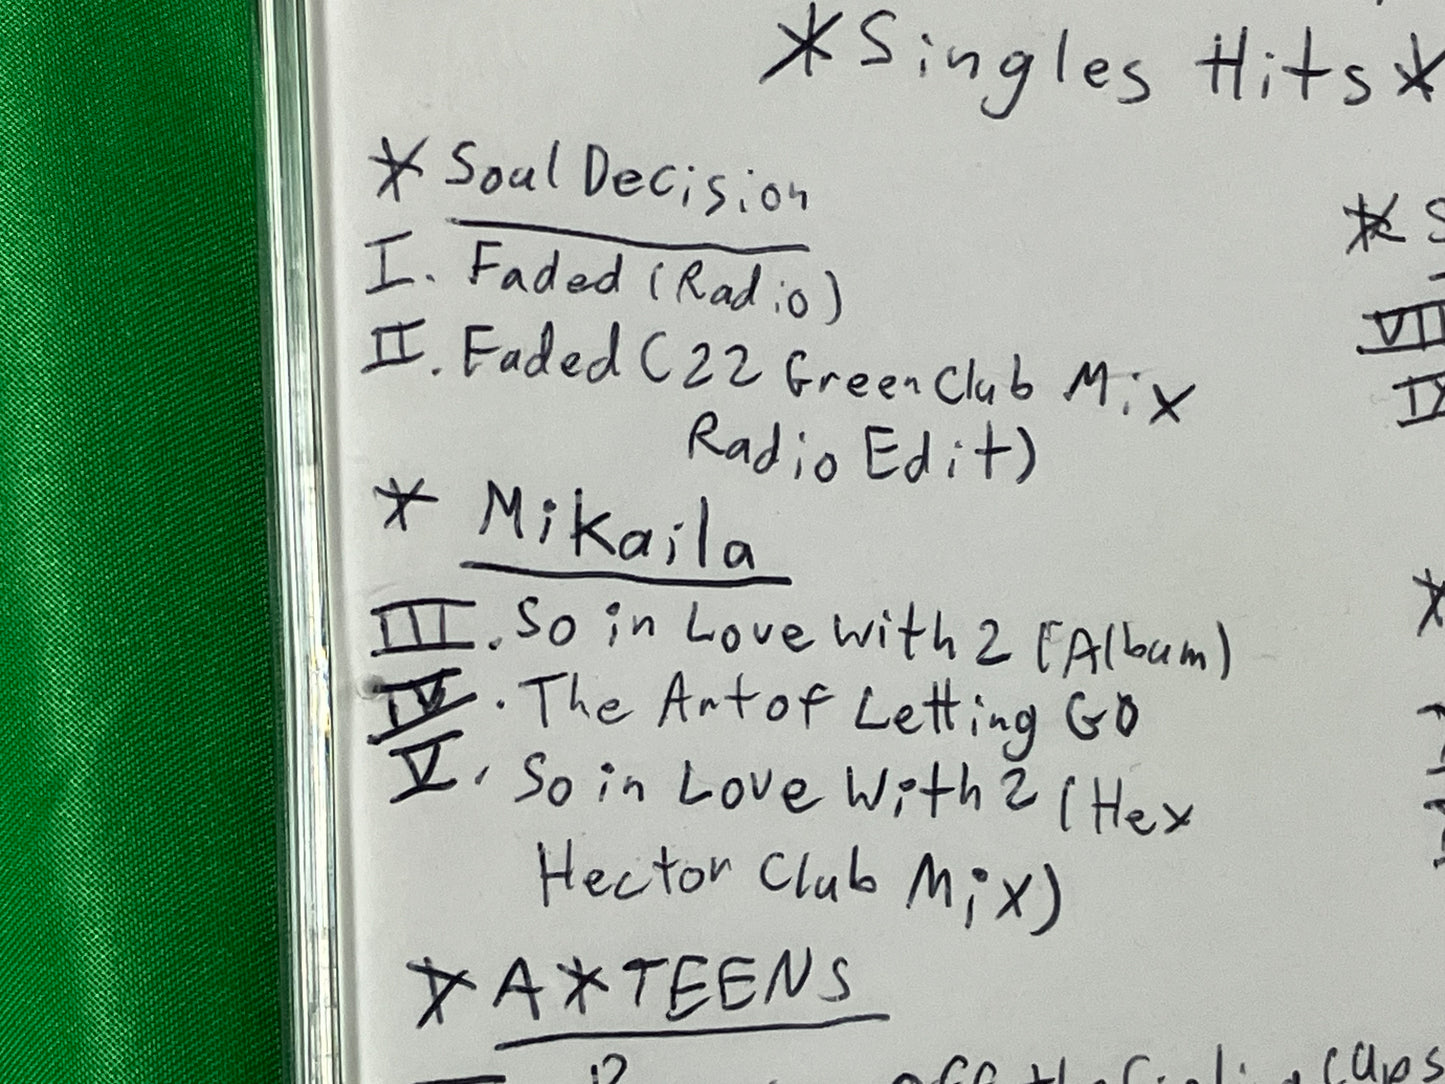 *Singles Hits*
* Soul Decision
I. Faded (Radio)
II. Faded (22 Green Club Mix
Radio Edit)
* Mikaila
III. So in Love With 2 (Album)
IV. The Art of Letting GO
V. So in Love With 2 (Hex
Hector Club Mix)
* A*TEENS
* S
VII
IX